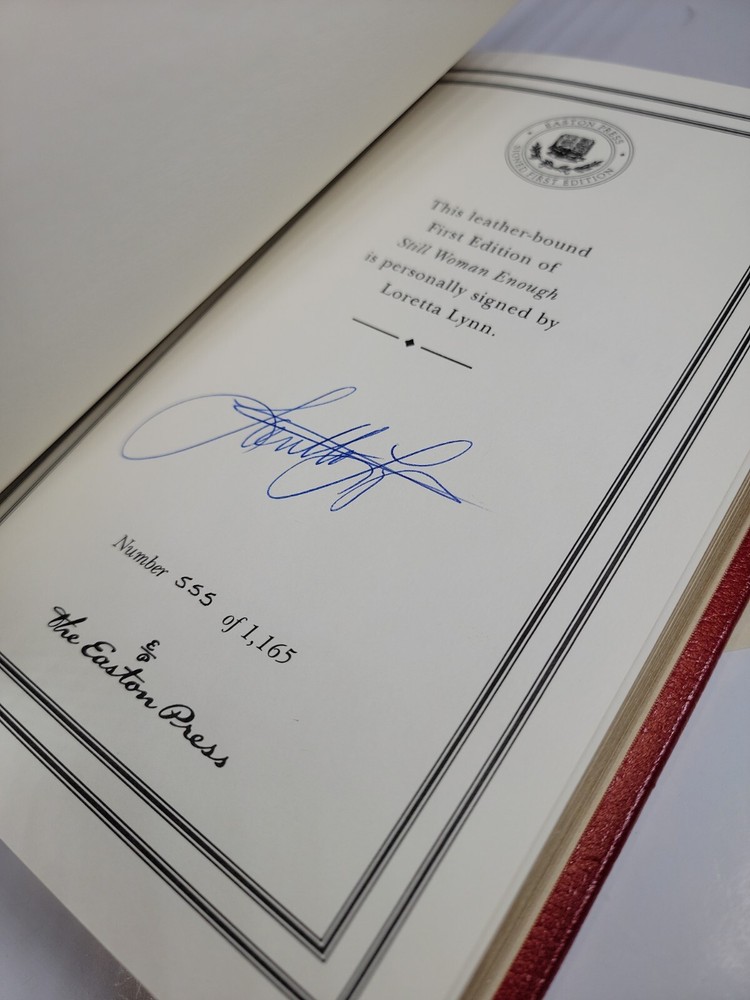 EASTON PRESS
SIGNED FIRST EDITION
This leather-bound
First Edition of
Still Woman Enough
is personally signed by
Loretta Lynn.
Loretta Lynn
Number 555 of 1,165
E/P
The Easton Press